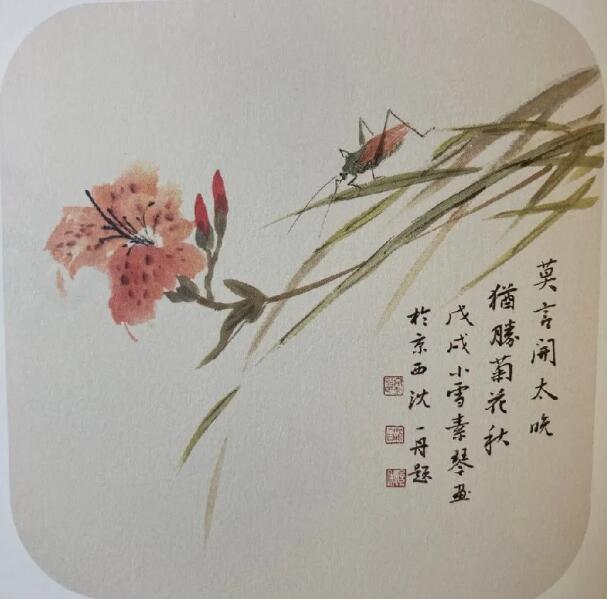 莫言開太晚
猶勝菊花秋
戊戌小雪素琴画
於京西沈一丹題